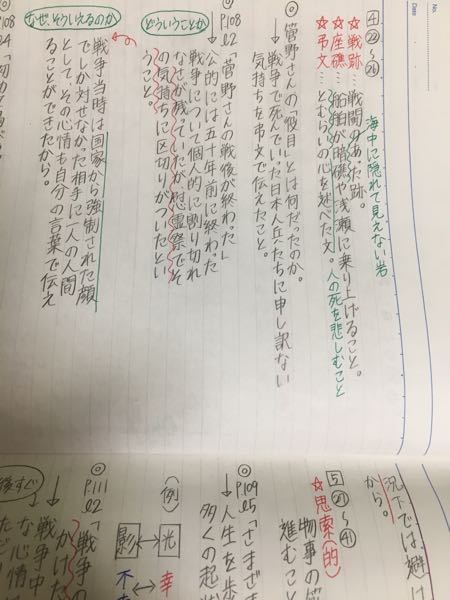 No.
Date
4 ㉒〜㉖
海中に隠れて見えない岩
☆戦跡…戦闘のあった跡。
☆座礁…船舶が暗礁や浅瀬に乗り上げること。
☆弔文…とむらいの心を述べた文。人の死を悲しむこと
◎菅野さんの「役目」とは何だったのか。
→戦争で死んでいった日本人兵たちに申し訳ない
気持ちを弔文で伝えたこと。
◎P108 l2「菅野さんの戦後が終わった」
どういうことか
→公的には五十年前に終わった
戦争について個人的に割り切れ
なさが残っていたが慰霊祭でそ
の気持ちに区切りがついたとい
うこと。
なぜ、そういえるのか
戦争当時は国家から強制された顔
でしか対せなかった相手に一人の人間
として、その心情も自分の言葉で伝え
ることができたから。
況下では避け
から。
5 ㉗〜㊶
☆思索的
物事の筋
進むこと
◎P109 l5「さまざま
→人生を歩
多くの起
(例)
光↔影
幸↔不
◎P111 l2「戦争の
かけた
後すぐ
→戦争中
な心情